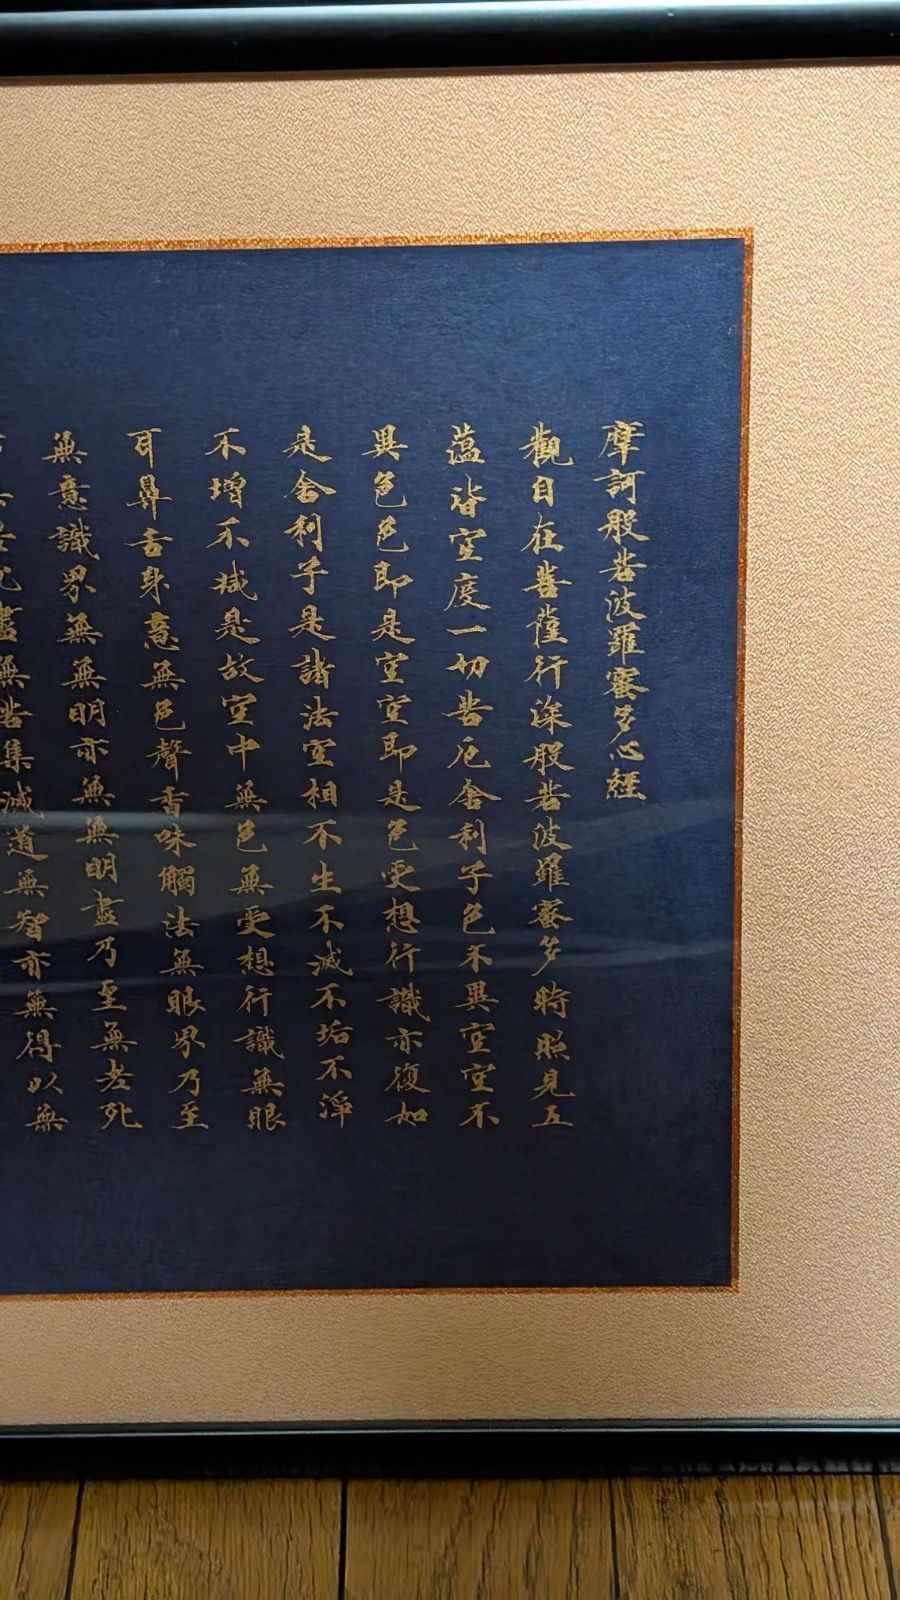 摩訶般若波羅蜜多心經
觀自在菩薩行深般若波羅蜜多時照見五
蘊皆空度一切苦厄舍利子色不異空空不
異色色即是空空即是色受想行識亦復如
是舍利子是諸法空相不生不滅不垢不淨
不增不減是故空中無色無受想行識無眼
耳鼻舌身意無色聲香味觸法無眼界乃至
無意識界無無明亦無無明盡乃至無老死
盡無苦集滅道無智亦無得以無